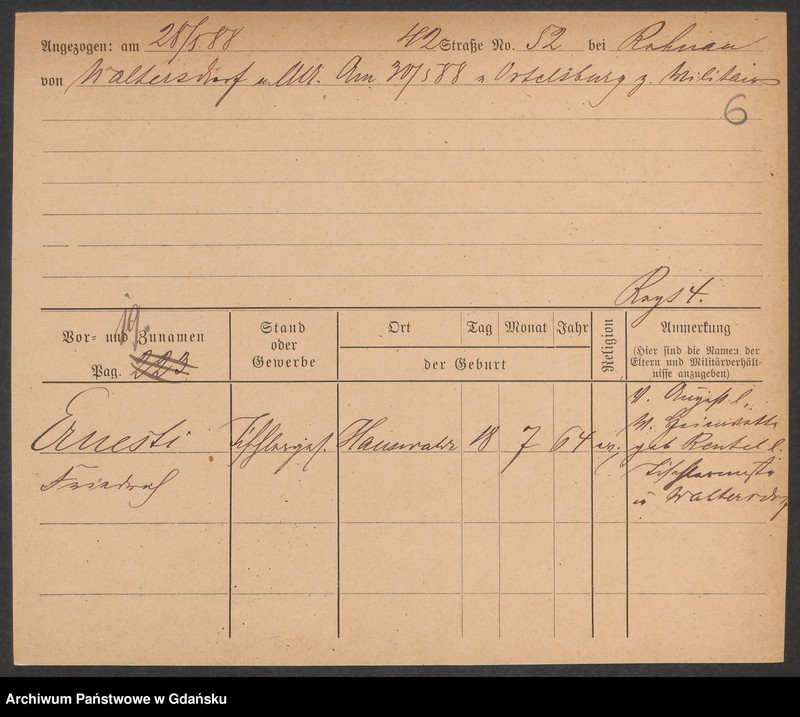 Angezogen: am 28/5 88 42 Straße No. 52 bei Rohnau
von Waltersdorf Am 30/5 88 n Ortelsburg z. Militair
6
Vor- und Zunamen
Pag. 223.
Stand
oder
Gewerbe
Ort Tag Monat Jahr
der Geburt
Religion
Anmerkung
(Hier sind die Namen der
Eltern und Militärverhält-
nisse anzugeben)
Ernesti
Friedrich
Tischlerges.
18 7 64 ev.
V. August l.
M.
geb Rentel l.
Tischlermeister
in Waltersdorf
Archiwum Państwowe w Gdańsku